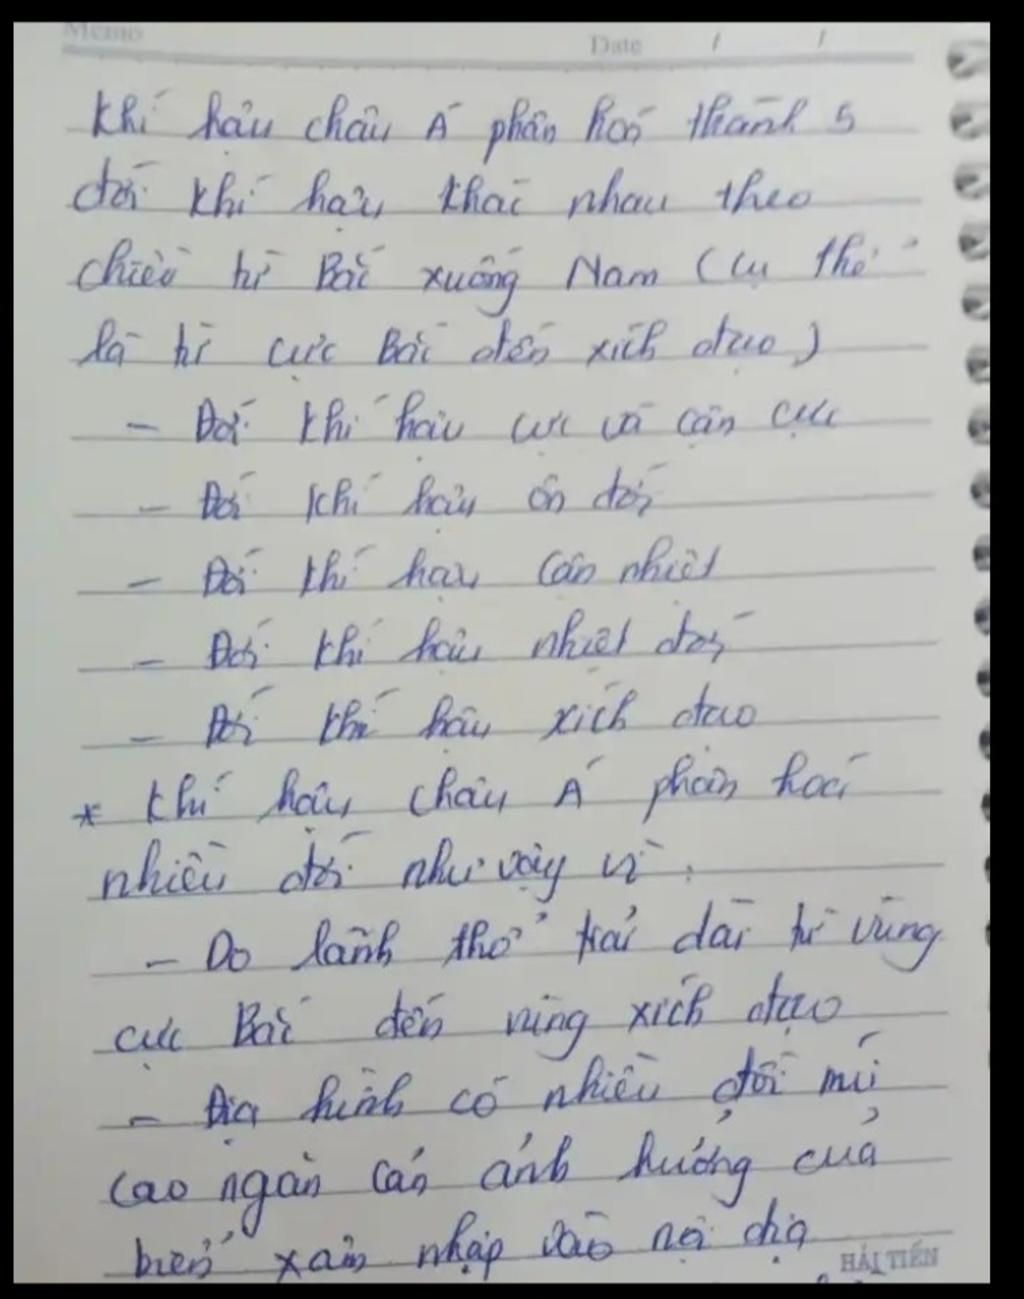 Memo
Date / /
Khí hậu châu Á phân hoá thành 5
đới khí hậu khác nhau theo
chiều từ Bắc xuống Nam (cụ thể
là từ cực Bắc đến xích đạo)
- Đới khí hậu cực và cận cực
- Đới khí hậu ôn đới
- Đới khí hậu cận nhiệt
- Đới khí hậu nhiệt đới
- Đới khí hậu xích đạo
* Khí hậu châu Á phân hoá
nhiều đới như vậy vì :
- Do lãnh thổ trải dài từ vùng
cực Bắc đến vùng xích đạo
- Địa hình có nhiều đồi núi
cao ngăn cản ảnh hưởng của
biển xâm nhập vào nội địa
HẢI TIẾN